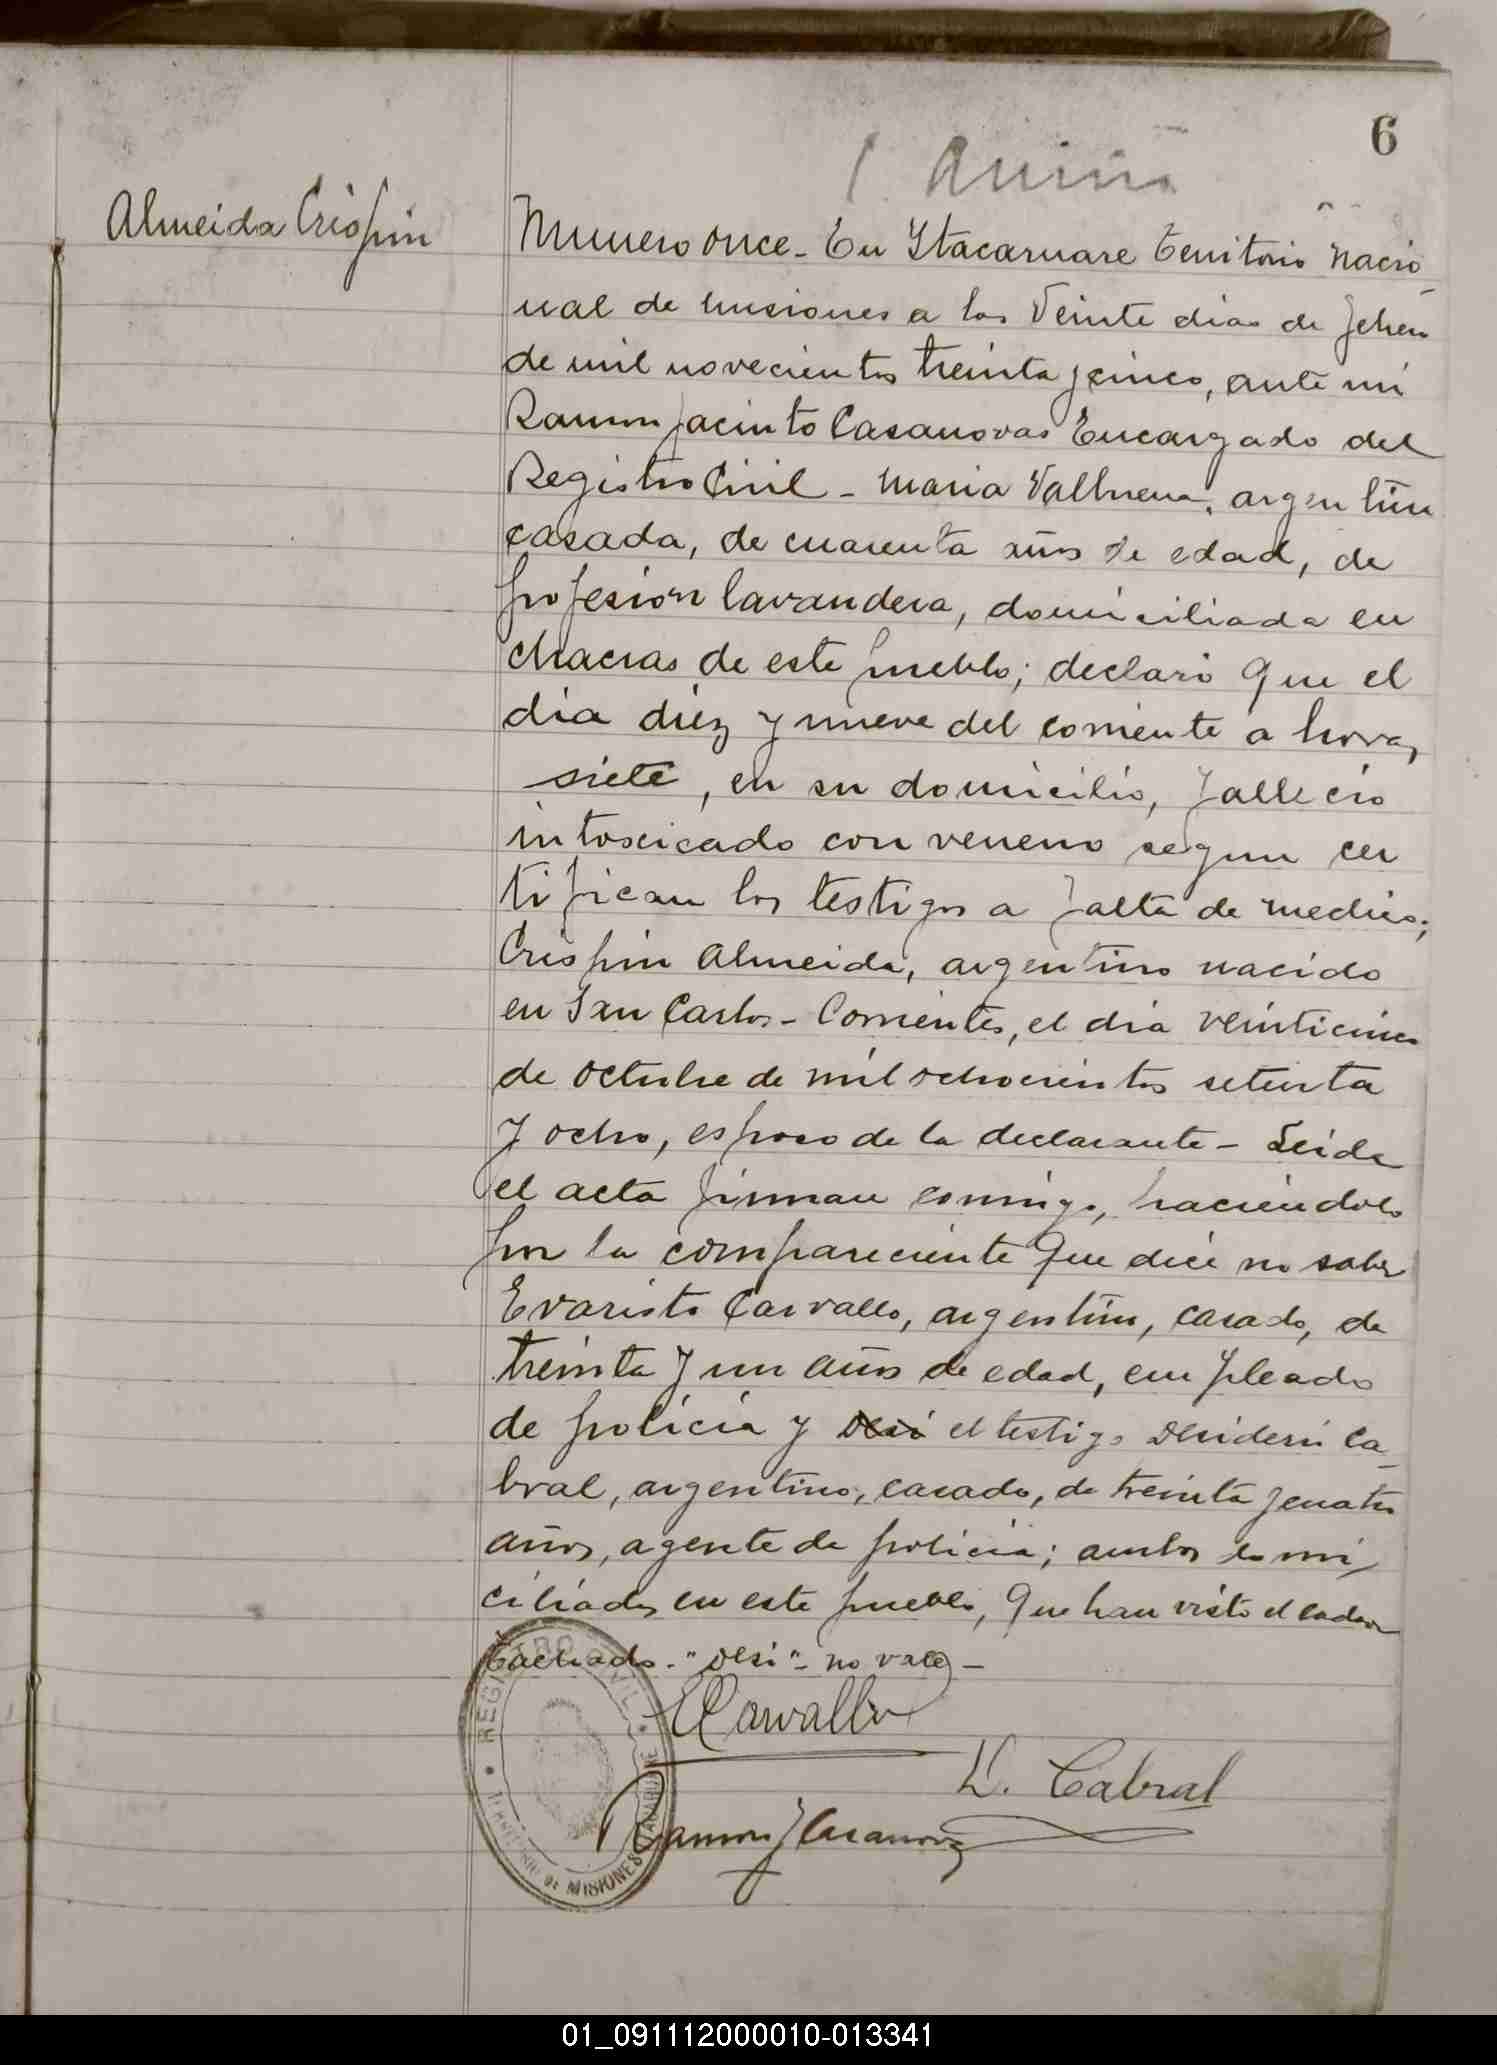 6
Almeida Crispin
Numero once - En Itacaruare Territorio Nacio
nal de Misiones a los Veinte dias de Febrero
de mil novecientos treinta y cinco, ante mi
Ramon Jacinto Casanovas Encargado del
Registro Civil - Maria Vallnera, argentina
casada, de cuarenta años de edad, de
profesion lavandera, domiciliada en
chacras de este pueblo; declaró que el
dia diez y nueve del corriente a horas
siete, en su domicilio, fallecio
intoxicado con veneno segun cer
tifican los testigos a falta de medico;
Crispin Almeida, argentino nacido
en San Carlos - Corrientes, el dia veinticinco
de octubre de mil ochocientos setenta
y ocho, esposo de la declarante - Leida
el acta firman conmigo, haciendolo
por la compareciente que dice no saber
Evaristo Carvallo, argentino, casado, de
treinta y un años de edad, empleado
de policia y Desi el testigo Desiderio Ca
bral, argentino, casado, de treinta y cuatro
años, agente de policia; ambos domi
ciliados en este pueblo, que han visto el cadaver
Tachado - "Desi" - no vale -
ECarvallo
D. Cabral
Ramon J Casanovas
REGISTRO CIVIL
TERRITORIO DE MISIONES ITACARUARE
01_091112000010-013341